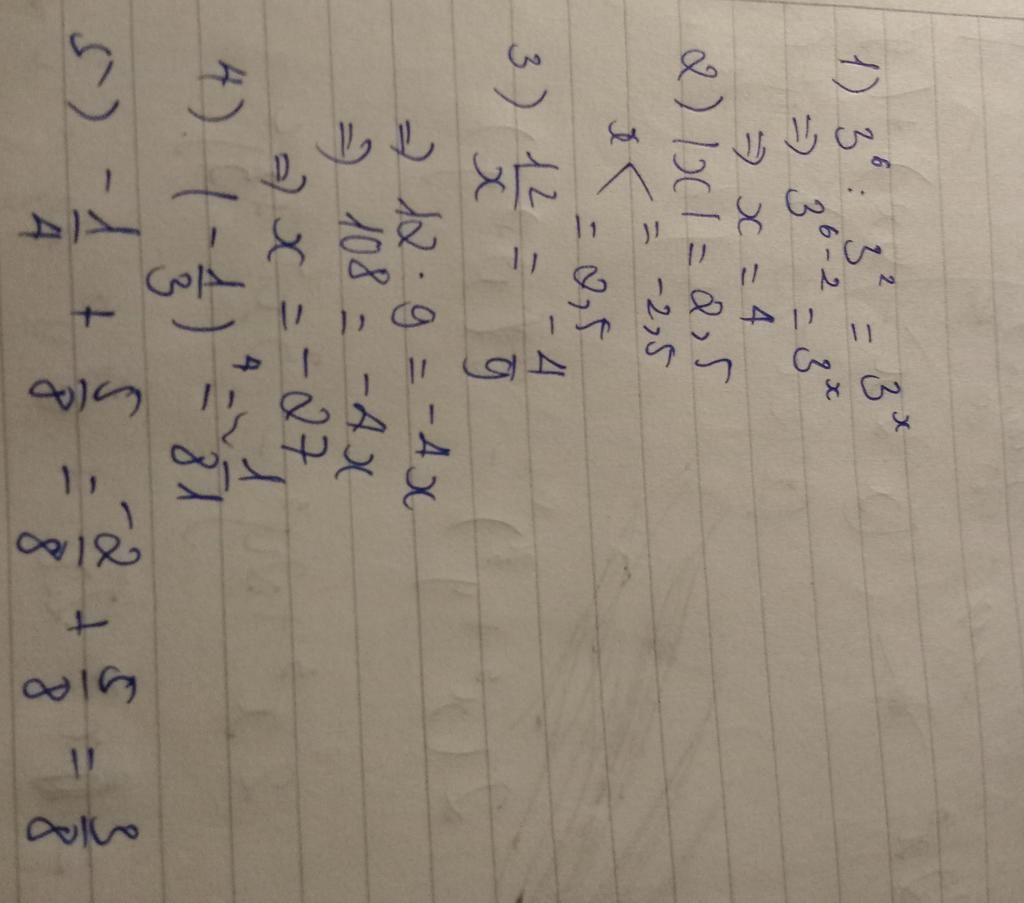 1) 3⁶ : 3² = 3ˣ
=> 3⁶⁻² = 3ˣ
=> x = 4
2) |x| = 2,5
x < = -2,5
= 2,5
3) 12/x = -4/9
=> 12 . 9 = -4x
=> 108 = -4x
=> x = -27
4) (-1/3)⁴ = 1/81
5) -1/4 + 5/8 = -2/8 + 5/8 = 3/8